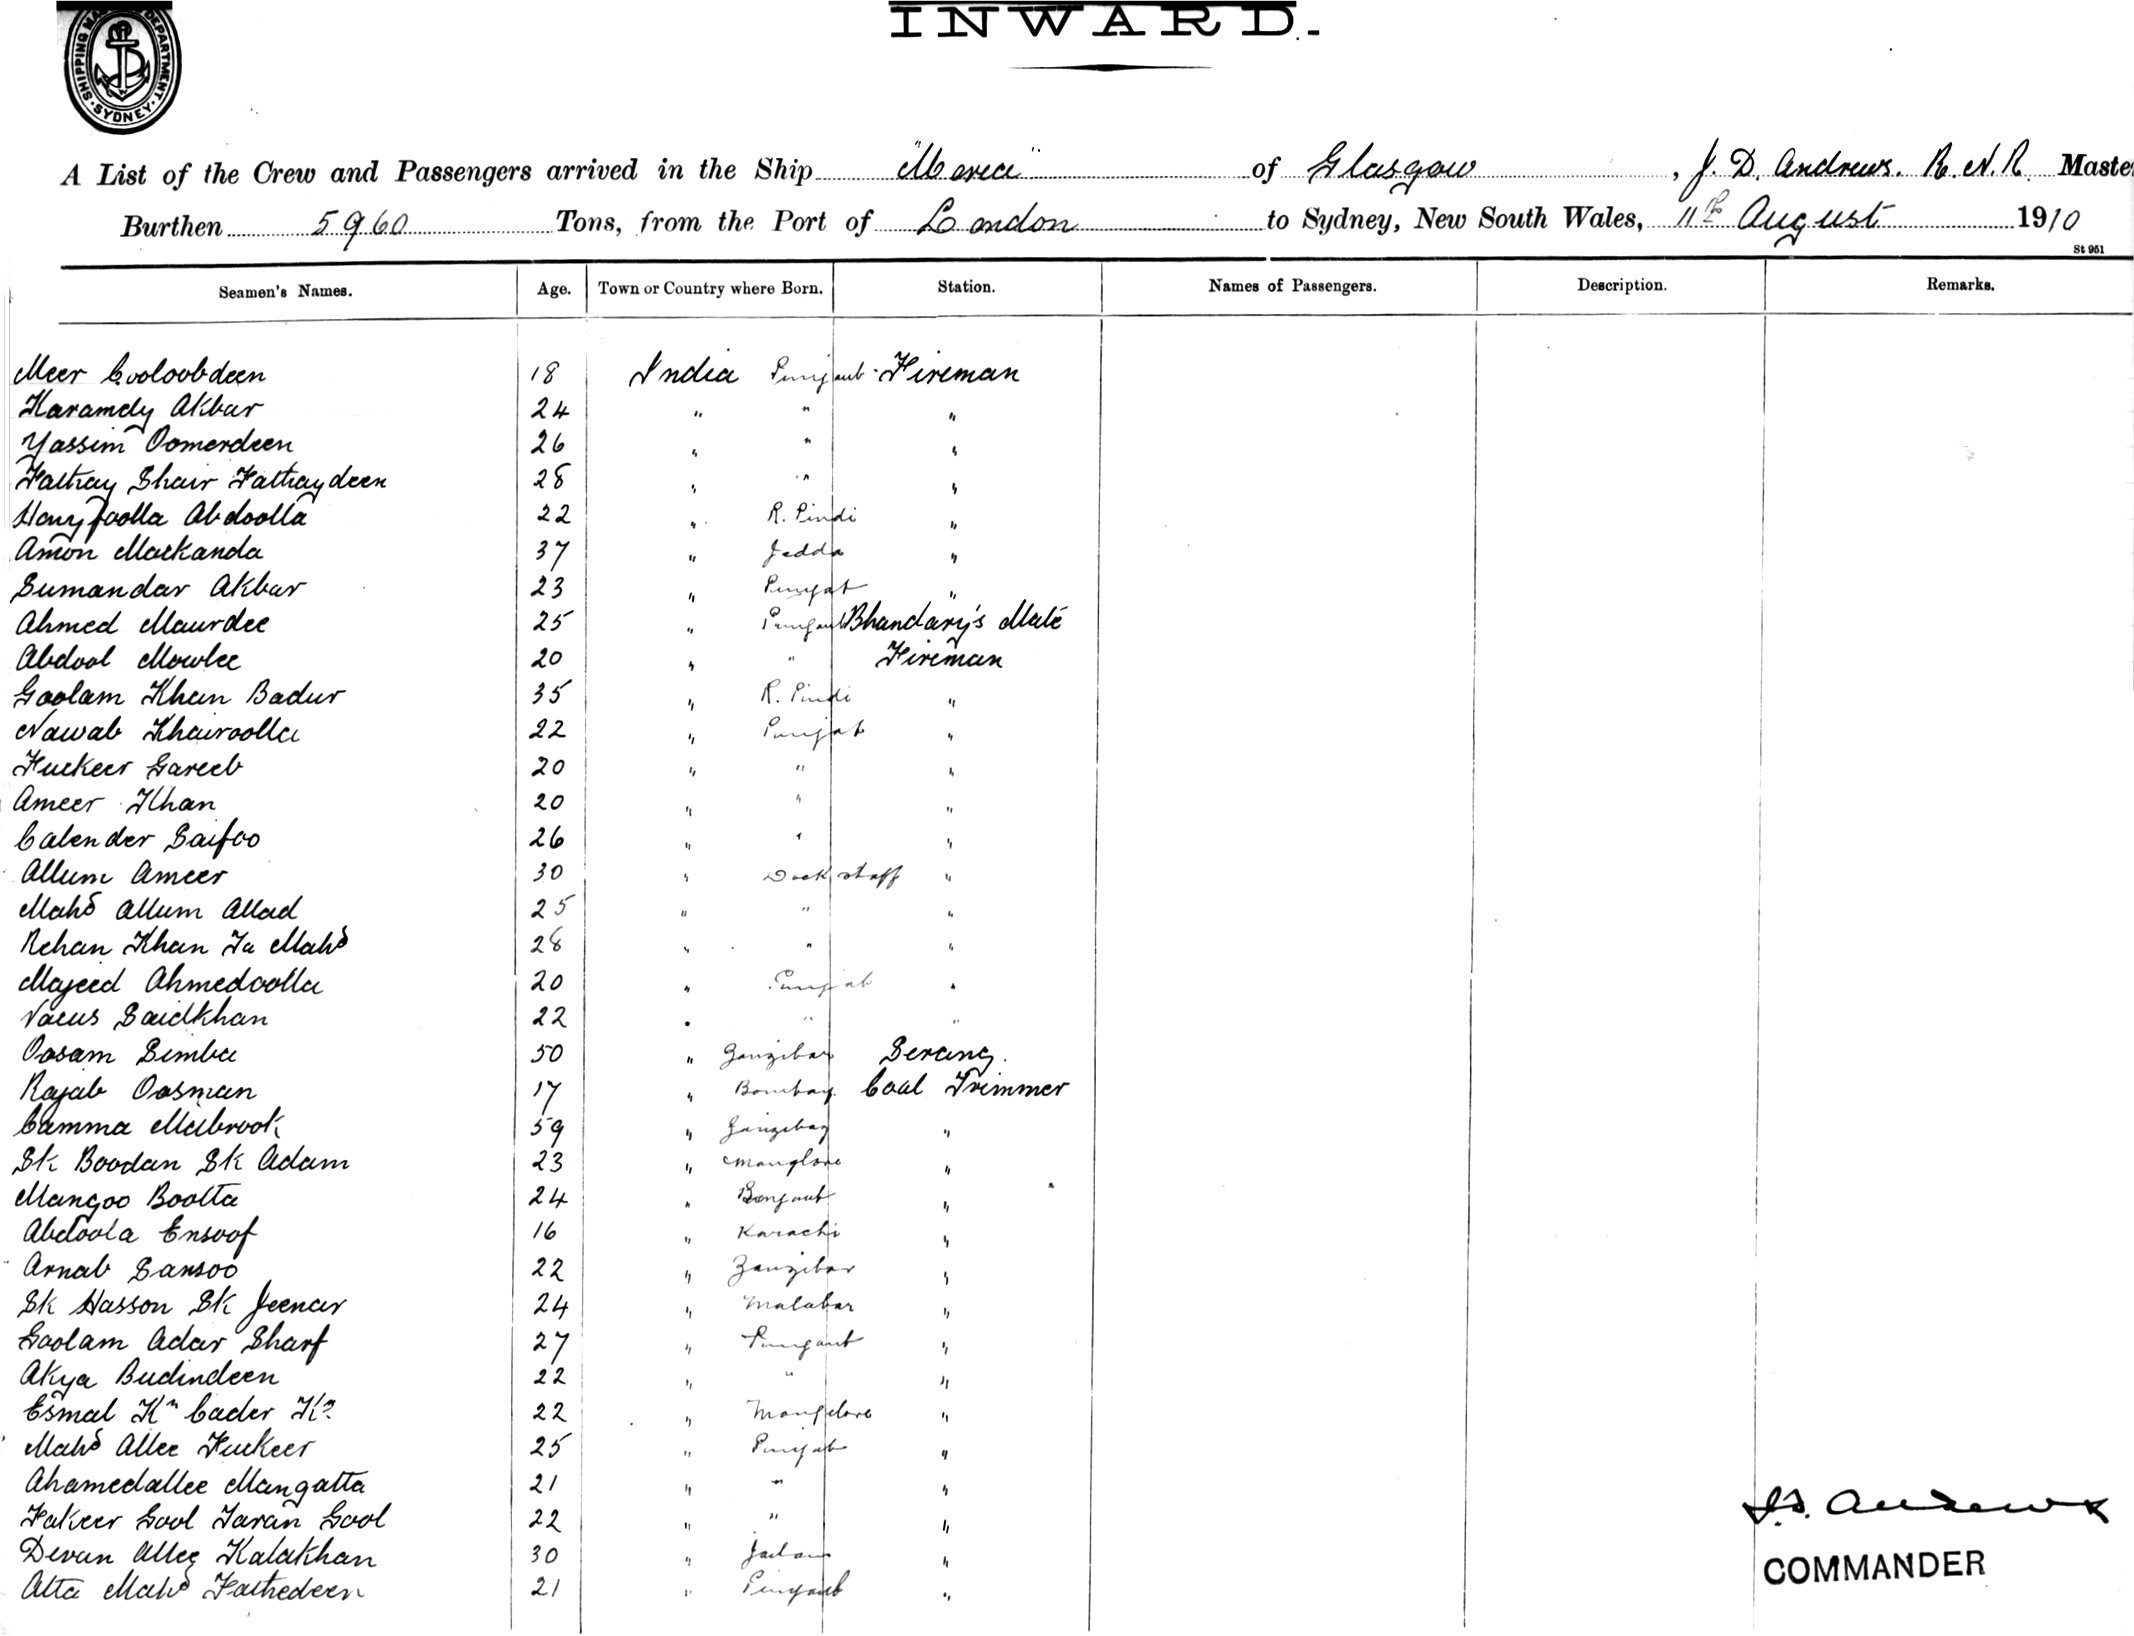 SHIPPING MA DEPARTMENT. SYDNEY.
INWARD.
A List of the Crew and Passengers arrived in the Ship "Morea" of Glasgow, J. D. Andrews. R.N.R. Maste
Burthen 5960 Tons, from the Port of London to Sydney, New South Wales, 11th August 1910
St 951
Seamen's Names. Age. Town or Country where Born. Station. Names of Passengers. Description. Remarks.
Meer Cooloobdeen 18 India Punjaub Fireman
Karamdy Akbar 24 " " "
Yassim Oomerdeen 26 " " "
Fathay Shair Fathaydeen 28 " " "
Abdoolla 22 " R. Pindi "
Amon Mackanda 37 " Jedda "
Sumandar Akbar 23 " Punjab "
Ahmed Maurdee 25 " Punjaub Bhandary's Mate
Abdool Mowlee 20 " " Fireman
Goolam Khan Badur 35 " R. Pindi "
Nawab Khairoolla 22 " Punjab "
Fuckeer Gareeb 20 " " "
Ameer Khan 20 " " "
Calender Saifoo 26 " " "
Allum Ameer 30 " Dock staff "
Mahd Allum Allad 25 " " "
Rehan Khan Ja Mahd 28 " " "
Majeed Ahmedoolla 20 " Punjab "
Saidkhan 22 " " "
Oosam Simba 50 " Zanzibar Serang.
Rajab Oosman 17 " Bombay. Coal Trimmer
Camma Mabrook 59 " Zanzibar "
Sk Boodan Sk Adam 23 " Manglore "
Mangoo Bootta 24 " Benjaub "
Abdoola Ensoof 16 " Karachi "
Arnab Sansoo 22 " Zanzibar "
Sk Hasson Sk Jeenar 24 " Malabar "
Goolam Adar Sharf 27 " Punjaub "
Akya Budindeen 22 " " "
Esmal Kn Cader Kn 22 " Mangelore "
Mahd Allee Fuckeer 25 " Punjab "
Ahamedallee Mangatta 21 " " "
Fakeer Gool Jaran Gool 22 " " "
Devan Alleg Kalakhan 30 " "
Atta Mahd Fathedeen 21 " Punjaub "
J.D. Andrews
COMMANDER